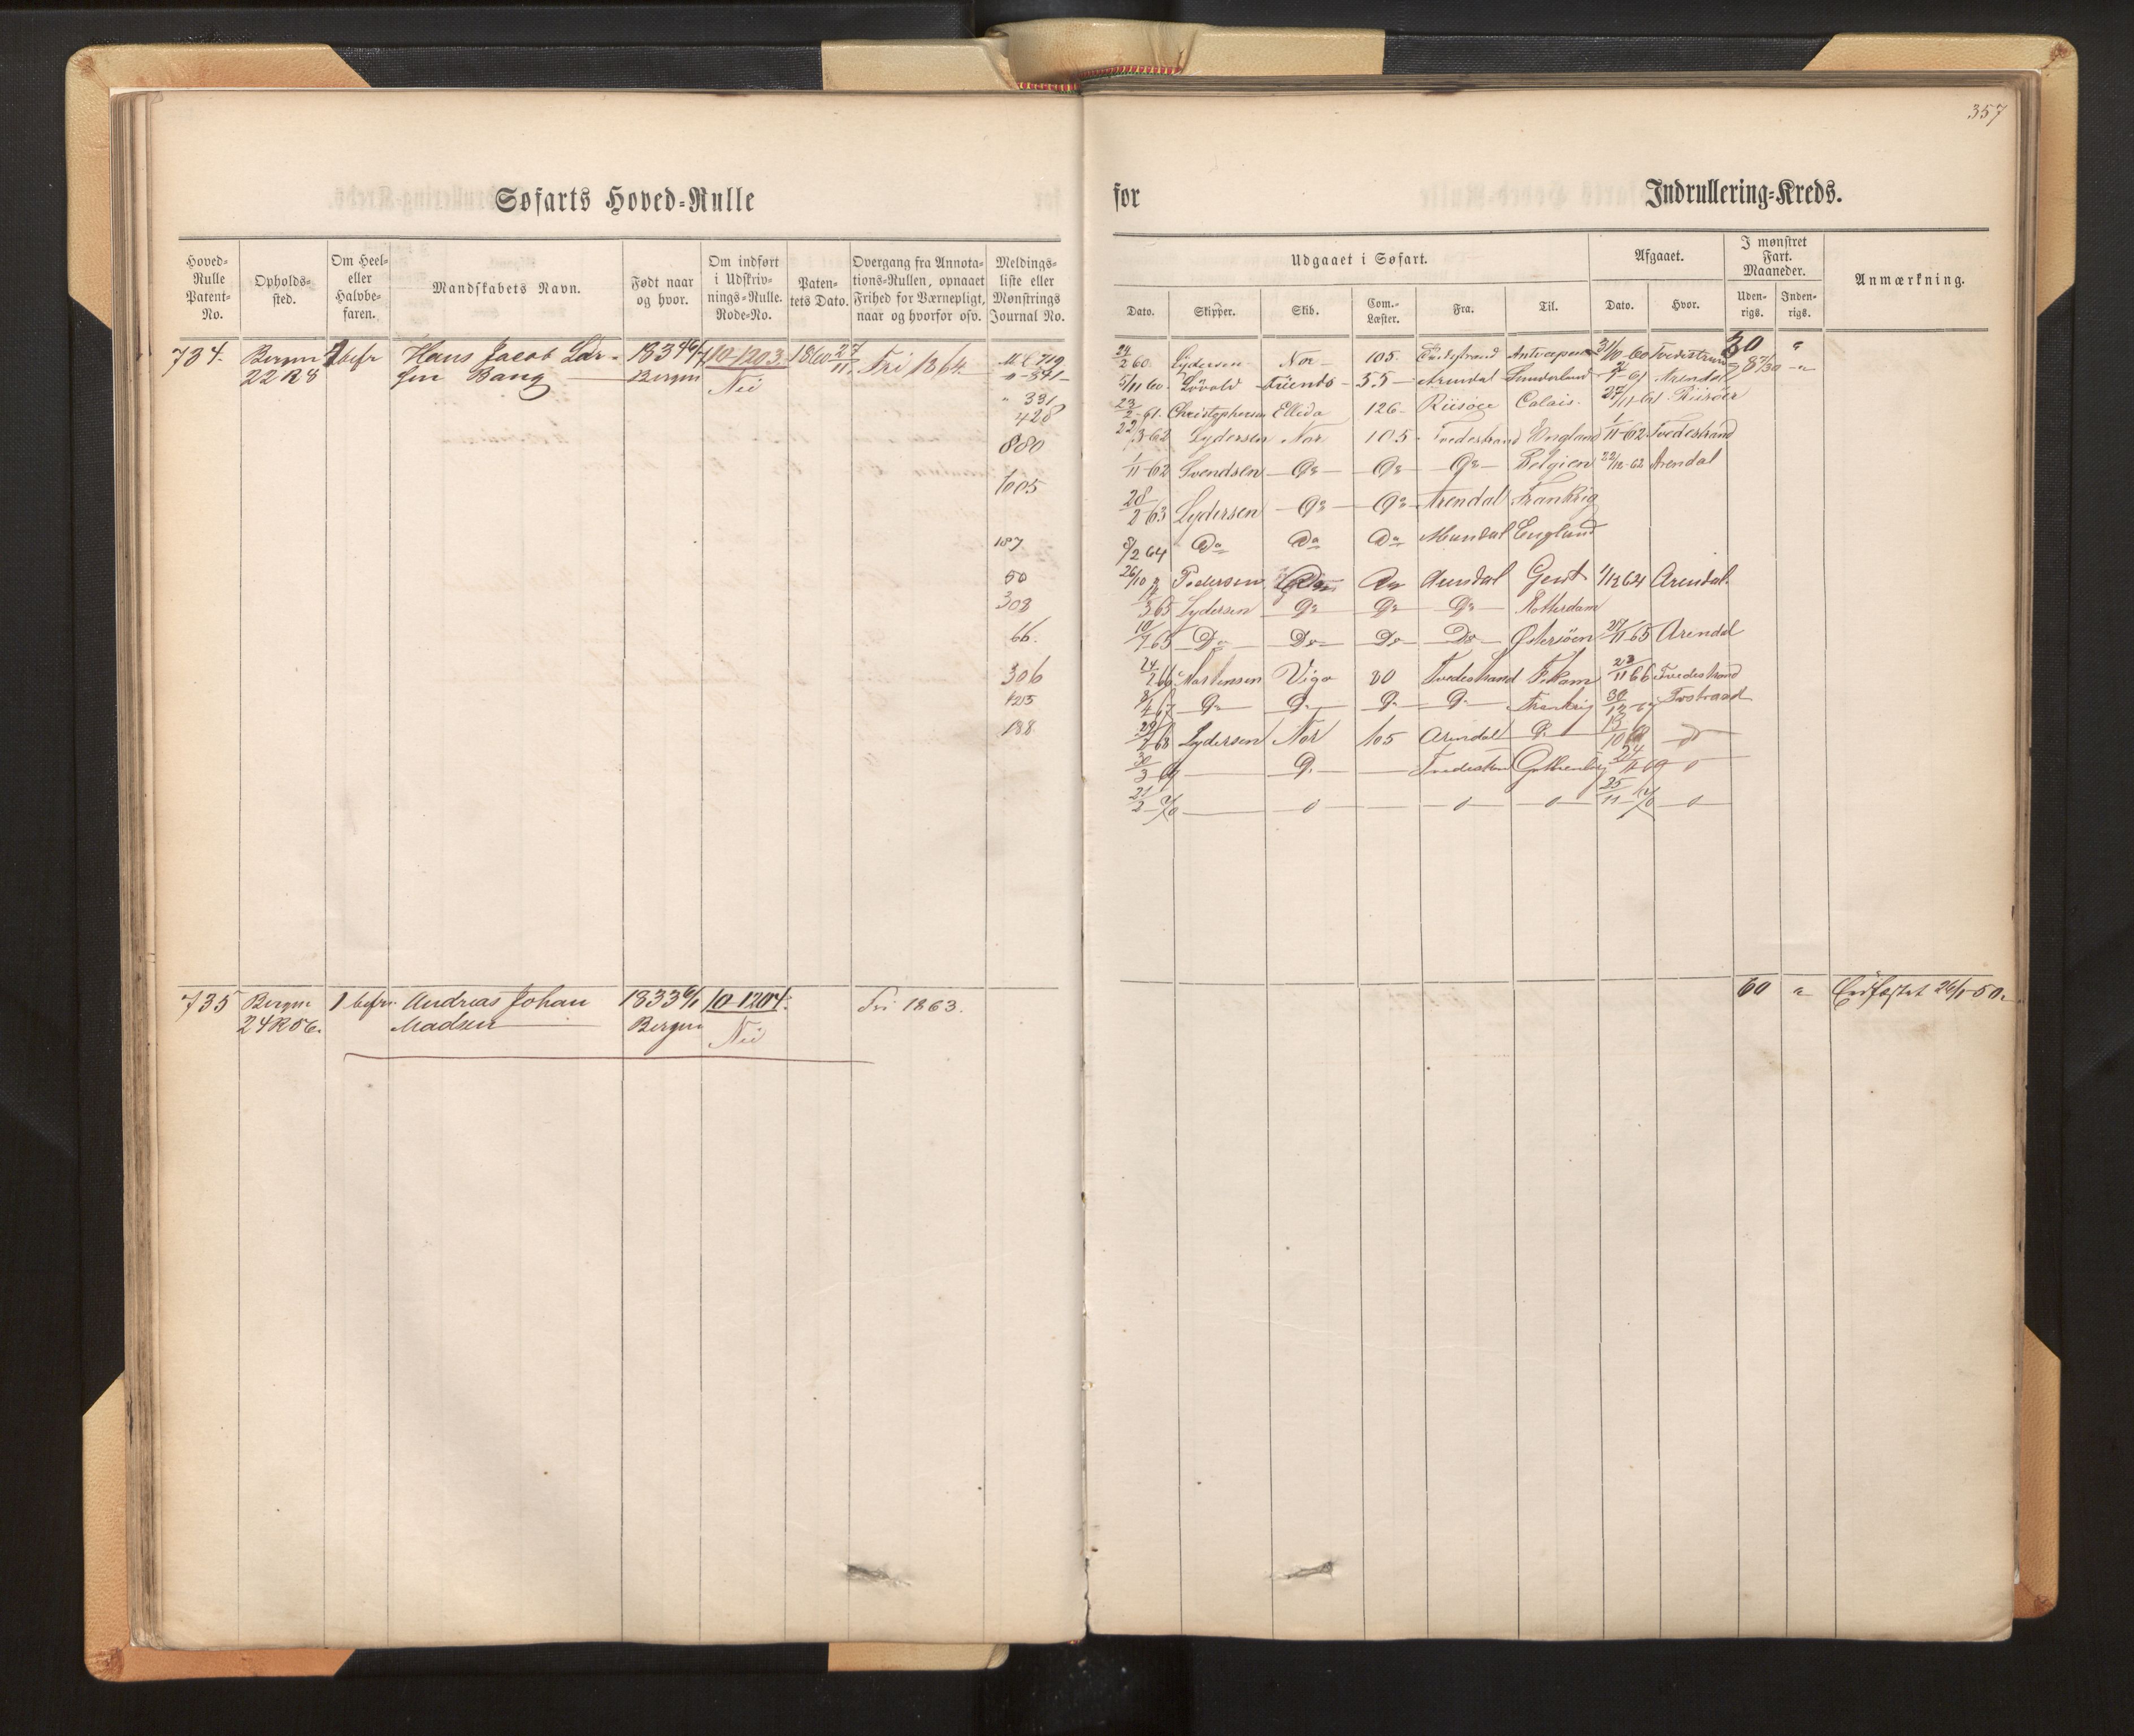 357
Søfarts Hoved-Rulle
for
Indrullering-Kreds.
Hoved-
Rulle
Patent-
No.
Opholds-
sted.
Om Heel-
eller
Halvbe-
faren.
Mandskabets Navn.
Født naar
og hvor.
Om indført
i Udskriv-
nings-Rulle.
Rode-No.
Paten-
tets Dato.
Overgang fra Annota-
tions-Rullen, opnaaet
Frihed for Værnepligt,
naar og hvorfor osv.
Meldings-
liste eller
Mønstrings
Journal No.
Udgaaet i Søfart.
Afgaaet.
I mønstret
Fart.
Maaneder.
Anmærkning.
Dato.
Skipper.
Skib.
Com.-
Læster.
Fra.
Til.
Dato.
Hvor.
Uden-
rigs.
Inden-
rigs.
734. Bergen befr Hans Jacob Lar- 1834 10-1203 1860 27/11 Fri 1864. 719
22 R 8 sen Bang Bergen Nei 841
331
428
880
1005
187
50
308
66.
306
425
188
24/2 60. Lydersen Nor 105. Antverpen 31/10-60 Tvedestrand
5/11 60 Løvold Friends 55 Arendal Sunderland -61 Arendal
23/2-61. Christophersen Ellida 126 Riisøer Calais. 27/11-61 Riisøer
22/3-62 Lydersen Nor 105 Tvedestrand England 1/11-62 Tvedestrand
1/11-62 Svendsen Do Do Do Belgien 22/12-62 Arendal
28/2-63 Lydersen Do Do Arendal Frankrig
8/2 64 Do Do Do Mandal England
26/10 " Pedersen Do Do Arendal Gent 1/12 64 Arendal.
3 65 Lydersen Do Do Do Rotterdam
10/7-65 Do Do Do Do Østersøen 27/11-65 Arendal
66 Mortensen Vigo 80 Tvedestrand 23/11 66 Tvedestrand
8/4 67 Do Do Do Do Frankrig 30/12-67
68 Lydersen Nor 105 Arendal Do
30/3 69 Do 24/11 69
21/2 70 25/11 70
735 Bergen 1 befr. Andreas Johan 1833 6/1 10-1204. Fri 1863. 60 "
Madsen Bergen Nei